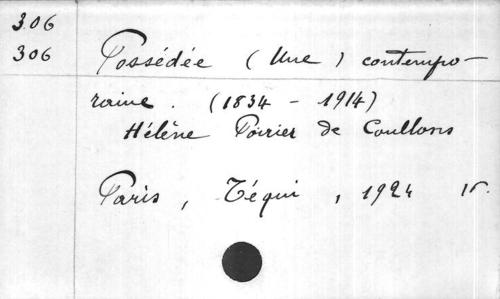 306
306
Possédée (Une) contempo-
raine. (1834 - 1914)
Hélène Poirier de Coullons
Paris, Téqui, 1924